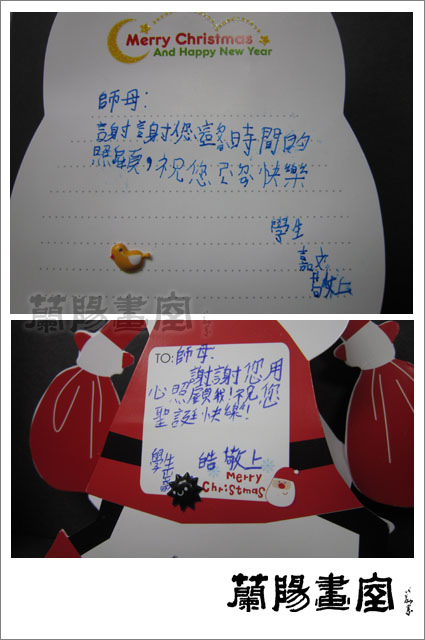 Merry Christmas
And Happy New Year
師母:
謝謝您這段時間的
照顧,祝您天天快樂
學生
嘉文
敬上
蘭陽畫室
TO:師母:
謝謝您用
心照顧我!祝您
聖誕快樂!
學生 皓 敬上
Merry
Christmas
蘭陽畫室